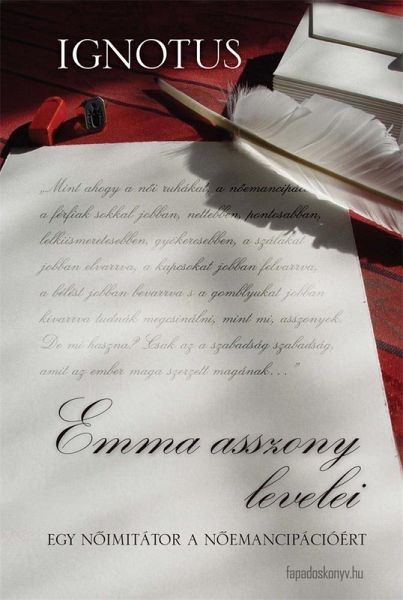 IGNOTUS
„Mint ahogy a női ruhákat, a nőemancipáci
a férfiak sokkal jobban, nettebben, pontosabban,
lelkiismeretesebben, gyökeresebben, a szálakat
jobban elvarrva, a kapcsokat jobban felvarrva,
a bélést jobban bevarrva s a gomblyukat jobban
kivarrva tudnák megcsinálni, mint mi, asszonyok.
De mi haszna? Csak az a szabadság szabadság,
amit az ember maga szerzett magának…"
Emma asszony
levelei
EGY NŐIMITÁTOR A NŐEMANCIPÁCIÓÉRT
fapadoskonyv.hu